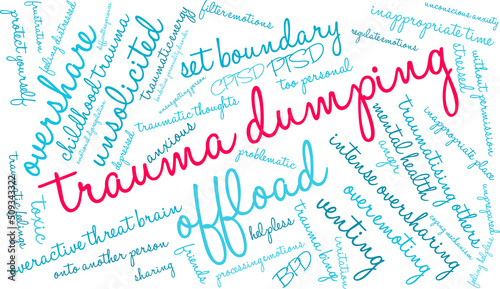 trauma dumping
offload
overshare
unsolicited
childhood trauma
set boundary
CPTSD
PTSD
too personal
traumatic energy
traumatic thoughts
anxious
depressed
protect yourself
frustration
feeling distressed
toxic
overactive threat brain
onto another person
sharing
friends
processing emotions
problematic
helpless
BPD
trauma bonding
irritation
venting
overemoting
intense oversharing
mental health
traumatising others
inappropriate place
without permission
stressed
inappropriate time
unconscious anxiety
regulate emotions
filter emotions
Adobe Stock
#509343322